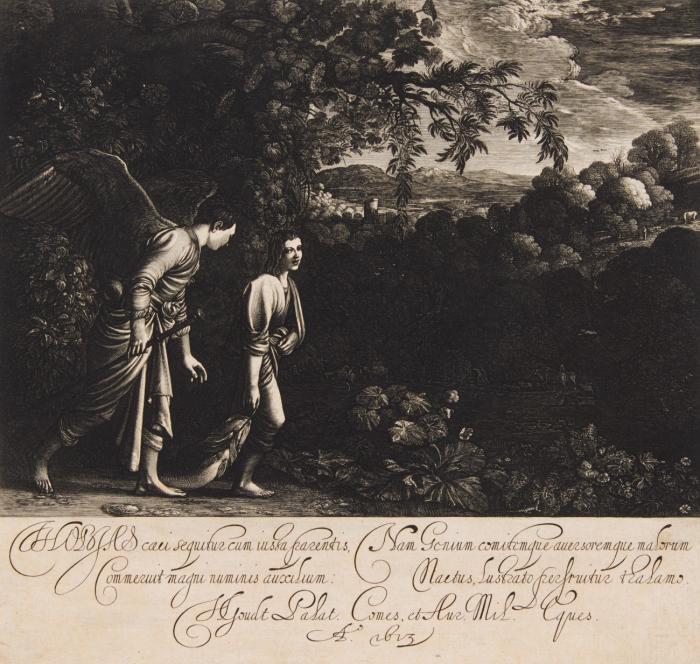 THOBIAS caeci sequitur cum iussa parentis,
Commeruit magni numinis auxilium:
Nam Genium comitemque auersoremque malorum
Nactus, Lustrato perfruitur thalamo.
HGoudt Palat. Comes, et Aur. Mil. Eques.
A.º 1613